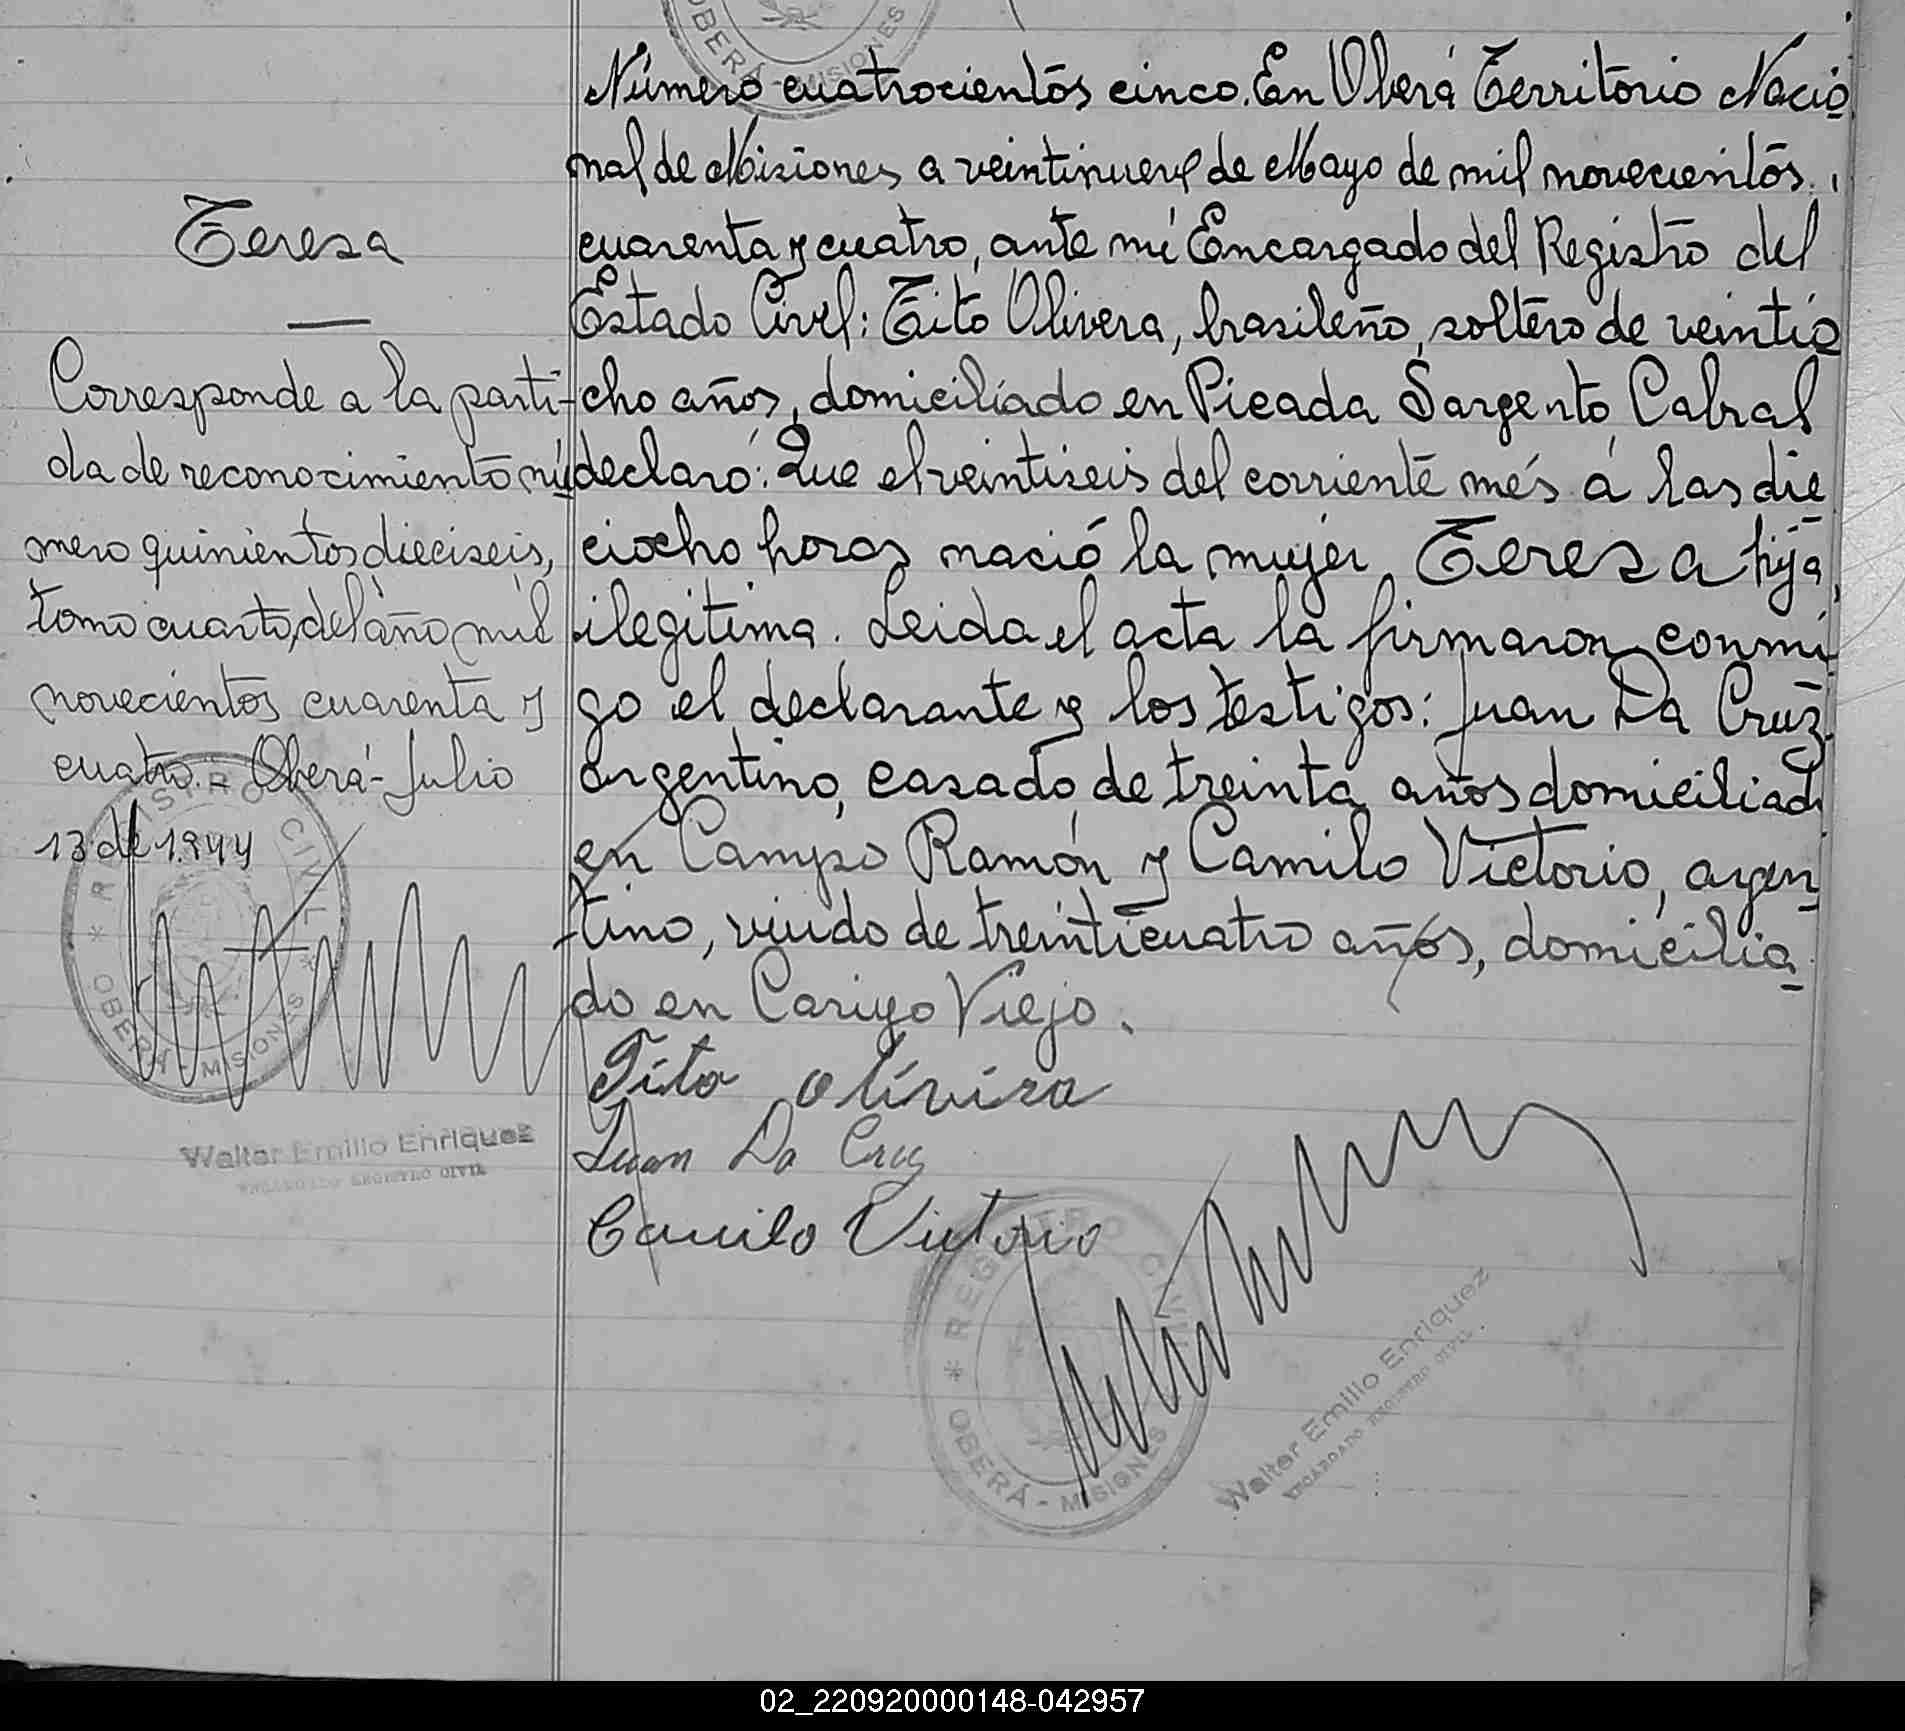 OBERÁ - MISIONES
Número cuatrocientos cinco. En Oberá Territorio Nacio
nal de Misiones a veintinueve de Mayo de mil novecientos
cuarenta y cuatro, ante mí Encargado del Registro del
Estado Civil: Tito Olivera, brasileño, soltero de veintio
cho años, domiciliado en Picada Sargento Cabral
declaró: Que el veintiseis del corriente més á las die
ciocho horas nació la mujer Teresa hija
ilegitima. Leida el acta la firmaron conmi
go el declarante y los testigos: Juan Da Cruz
argentino, casado de treinta años domiciliado
en Campo Ramón y Camilo Victorio, argen
tino, viudo de treinticuatro años, domicilia
do en Cariyo Viejo.
Tito olivira
Juan Da Cruz
Camilo Victorio
REGISTRO CIVIL
OBERÁ - MISIONES
Walter Emilio Enriquez
ENCARGADO REGISTRO CIVIL
Teresa
Corresponde a la parti-
da de reconocimiento nú
mero quinientos dieciseis,
tomo cuarto, del año mil
novecientos cuarenta y
cuatro.- Oberá - Julio
13 de 1.944
REGISTRO CIVIL
OBERÁ - MISIONES
Walter Emilio Enriquez
ENCARGADO REGISTRO CIVIL
02_220920000148-042957